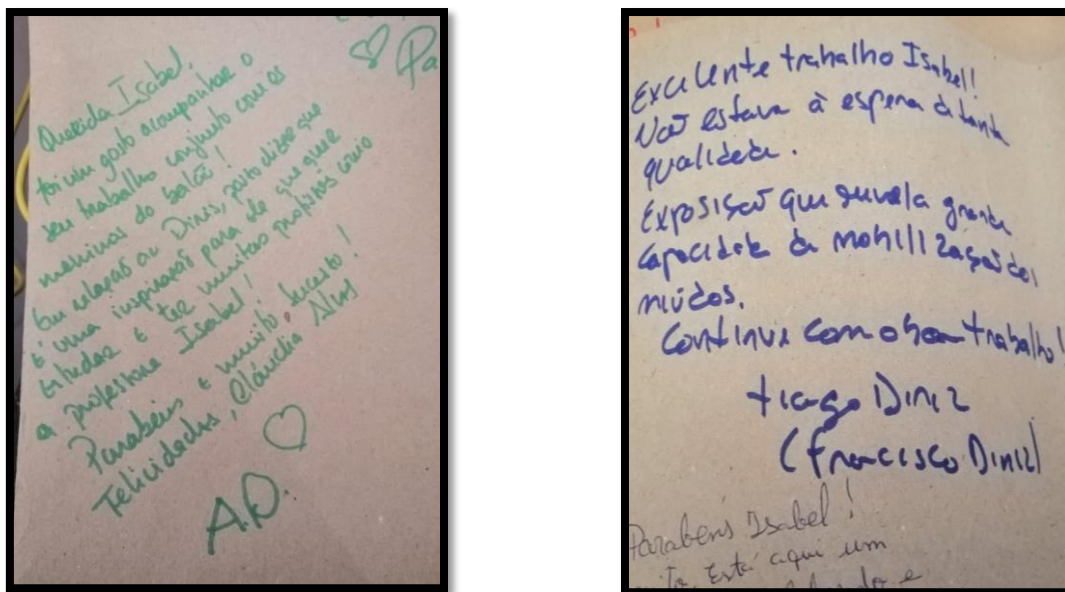 Pa
Querida Isabel,
foi um gosto acompanhar o
seu trabalho conjunto com os
meninos do
Em relação ao Dinis, posso dizer que
é uma inspiração para ele que quer
estudar e ter muitos profetores como
a professora Isabel!
Parabéns e muito sucesso!
Felicidades, Cláudia Alves
A.D.
Excelente trabalho Isabel!
Não estava à espera de tanta
qualidade.
Exposição que revela grande
capacidade de mobilização dos
miúdos.
Continue com o bom trabalho!
Tiago Diniz
(Francisco Diniz)
Parabéns Isabel!
Está aqui um
e